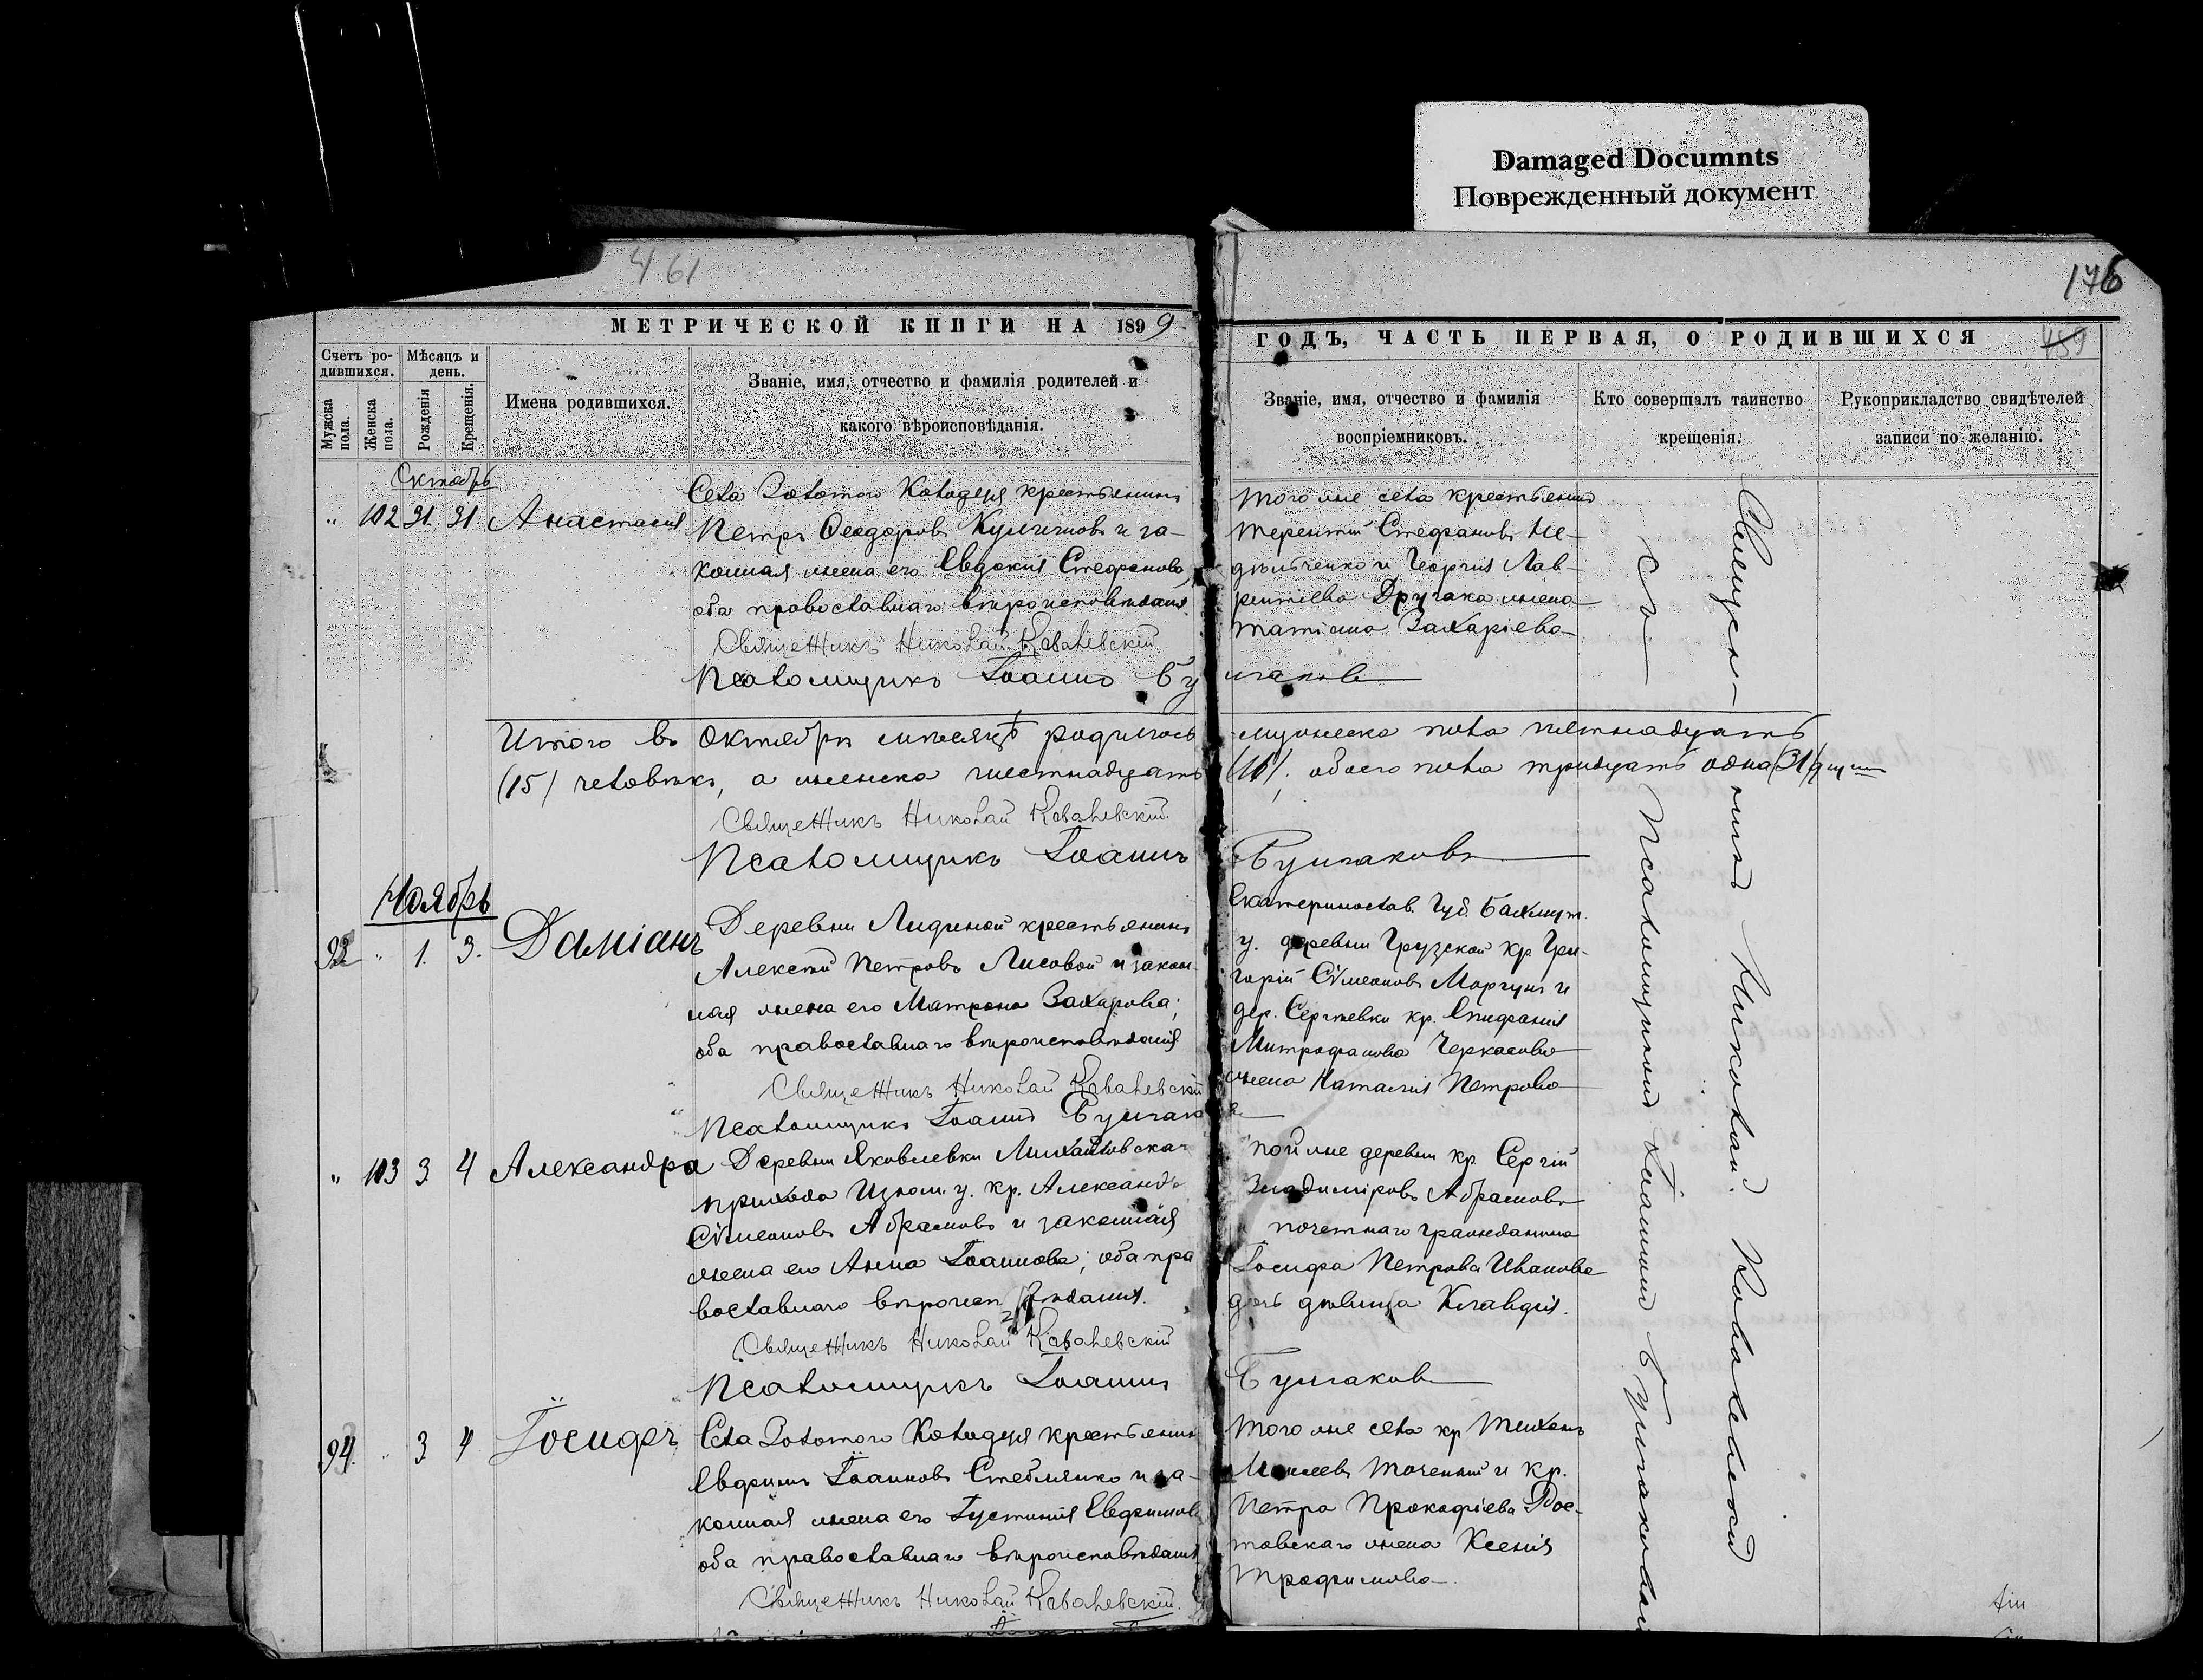 Damaged Documnts
Поврежденный документ
461
176
МЕТРИЧЕСКОЙ КНИГИ НА 1899
ГОДЪ, ЧАСТЬ ПЕРВАЯ, О РОДИВШИХСЯ
459
Счетъ ро-
дившихся.
Мѣсяцъ и
день.
Мужска
пола.
Женска
пола.
Рожденія
Крещенія.
Имена родившихся.
Званіе, имя, отчество и фамилія родителей и
какого вѣроисповѣданія.
Званіе, имя, отчество и фамилія
воспріемниковъ.
Кто совершалъ таинство
крещенія.
Рукоприкладство свидѣтелей
записи по желанію.
Октябрь
" 102 31. 31 Анастасія
Села Золотого Колодезя крестьянинъ
Петръ Ѳеодоровъ и за-
конная жена его Евдокія Стефанова,
оба православнаго вѣроисповѣданія.
Священникъ Николай Ковалевскій.
Псаломщикъ Іоаннъ Булгаковъ
того же села крестьянинъ
Терентій Стефановъ Не-
дѣльченко и Георгія Лав-
рентіева Дручака жена
Татіана Захаріева
Итого въ Октябрѣ мѣсяцѣ родилось мужеска пола пятнадцать
(15) человѣкъ, а женска шестнадцать (16); обоего пола тридцать одна (31) душа
Священникъ Николай Ковалевскій.
Псаломщикъ Іоаннъ Булгаковъ
Ноябрь
93 " 1. 3. Даміанъ
Деревни Лидиной крестьянинъ
Алексѣй Петровъ Лисовой и закон-
ная жена его Матрона Захарова;
оба православнаго вѣроисповѣданія
Священникъ Николай Ковалевскій
Псаломщикъ Іоаннъ Булгаковъ
Екатеринослав. Губ. Бахмут.
у. деревни Грузской кр. Гри-
горій Сѵмеоновъ Моргунъ и
дер. Сергѣевки кр. Епифанія
Митрофанова Черкасова
жена Наталія Петрова
" 103 3 4 Александра
Деревни Яковлевки Михайловска-
прихода Изюм. у. кр. Александръ
Сѵмеоновъ Абрамовъ и законная
жена его Анна Іоаннова; оба пра
вославнаго вѣроисповѣданія.
Священникъ Николай Ковалевскій
Псаломщикъ Іоаннъ Булгаковъ
той же деревни кр. Сергій
Владиміровъ Абрамовъ
и почетнаго гражданина
Іосифа Петрова Иванова
дочь дѣвица Клавдія.
94. " 3 4 Іосифъ
Села Золотого Колодезя крестьянинъ
Евфимъ Іоанновъ Стеблянко и за-
конная жена его Іустинія Евфимова
оба православнаго вѣроисповѣданія
Священникъ Николай Ковалевскій.
того же села кр. Тихонъ
Моисеевъ Точенный и кр.
Петра Прокофіева Рос-
товскаго жена Ксенія
Трофимова.
Священникъ Николай Ковалевскій
съ Псаломщикомъ Іоанномъ Булгаковымъ